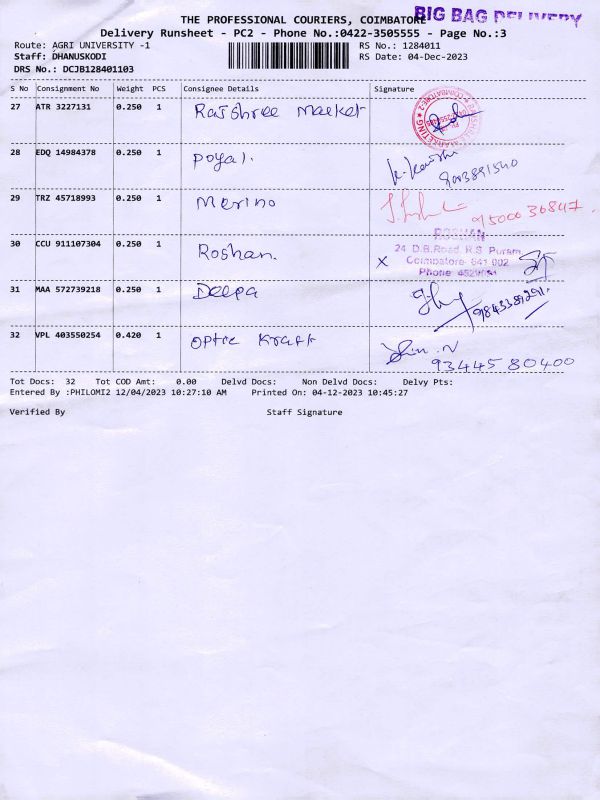 THE PROFESSIONAL COURIERS, COIMBATORE
BIG BAG DELIVERY
Delivery Runsheet - PC2 - Phone No.:0422-3505555 - Page No.:3
Route: AGRI UNIVERSITY -1
RS No.: 1284011
Staff: DHANUSKODI
RS Date: 04-Dec-2023
DRS No.: DCJB128401103
S No Consignment No Weight PCS Consignee Details Signature
27 ATR 3227131 0.250 1 Rajshree Market
28 EDQ 14984378 0.250 1 Poyal.
9003891540
29 TRZ 45718993 0.250 1 Merino
9500036847.
ROSHAN
30 CCU 911107304 0.250 1 Roshan.
24 D.B.Road R.S. Puram,
Coimbatore 641 002
X
Phone
31 MAA 572739218 0.250 1 Deepa
32 VPL 403550254 0.420 1 Optic Kraft
9344580400
Tot Docs: 32 Tot COD Amt: 0.00 Delvd Docs: Non Delvd Docs: Delvy Pts:
Entered By :PHILOMI2 12/04/2023 10:27:10 AM Printed On: 04-12-2023 10:45:27
Verified By Staff Signature